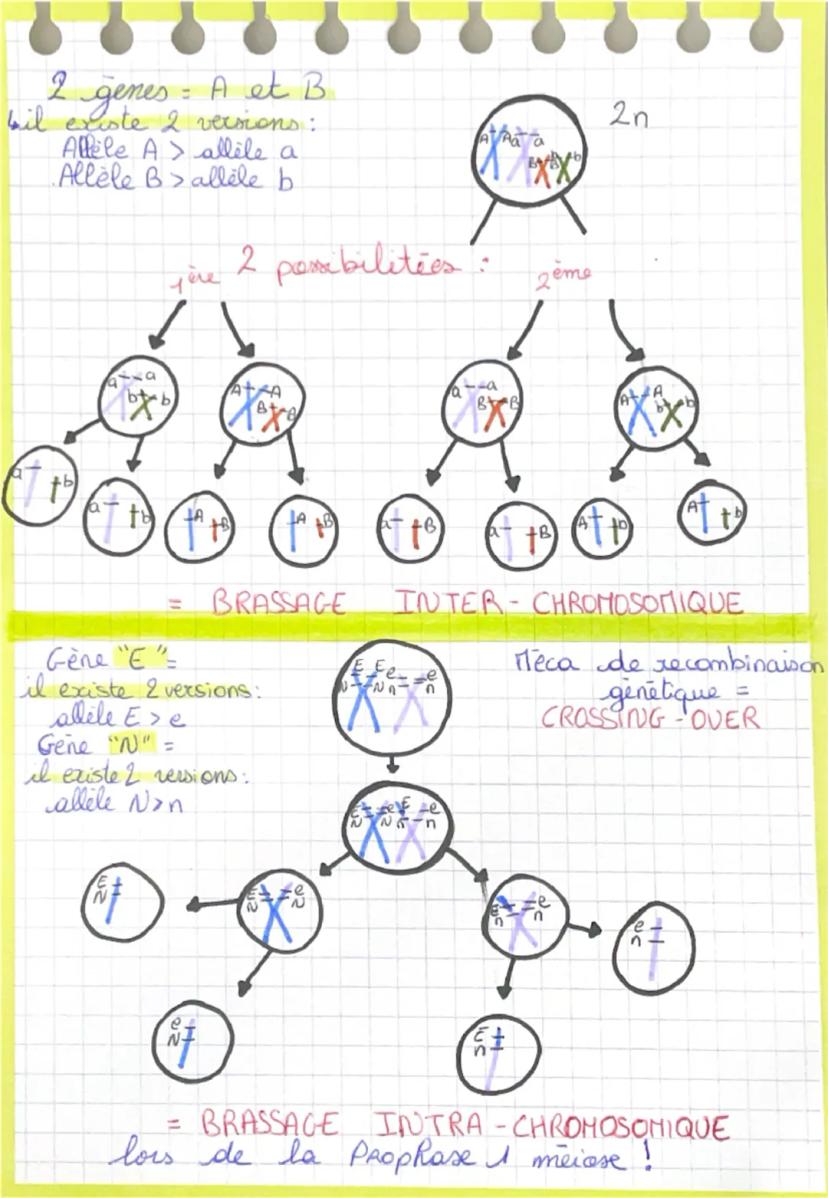 2 gènes = A et B
↳il existe 2 versions :
Allèle A > allèle a
Allèle B > allèle b
2n
A A a a
B B b
2 possibilitées :
1ère
2ème
a a
b b
A A
B B
a a
B B
A A
b b
a b
a b
A B
A B
a B
a B
A b
A b
= BRASSAGE INTER-CHROMOSOMIQUE
Gène "E" =
il existe 2 versions :
allèle E > e
Gène "N" =
il existe 2 versions :
allèle N > n
Méca de recombinaison
génétique =
CROSSING-OVER
E E e e
N N n n
E e E e
N N n n
E e
N N
E e
n n
E
N
e
n
e
N
E
n
= BRASSAGE INTRA-CHROMOSOMIQUE
lors de la Prophase 1 méiose !